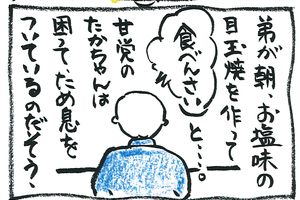 弟が朝、お塩味の
目玉焼を作って
食べんさい
と…。
甘党の
たかちゃんは
困ってため息を
ついているのだそう、